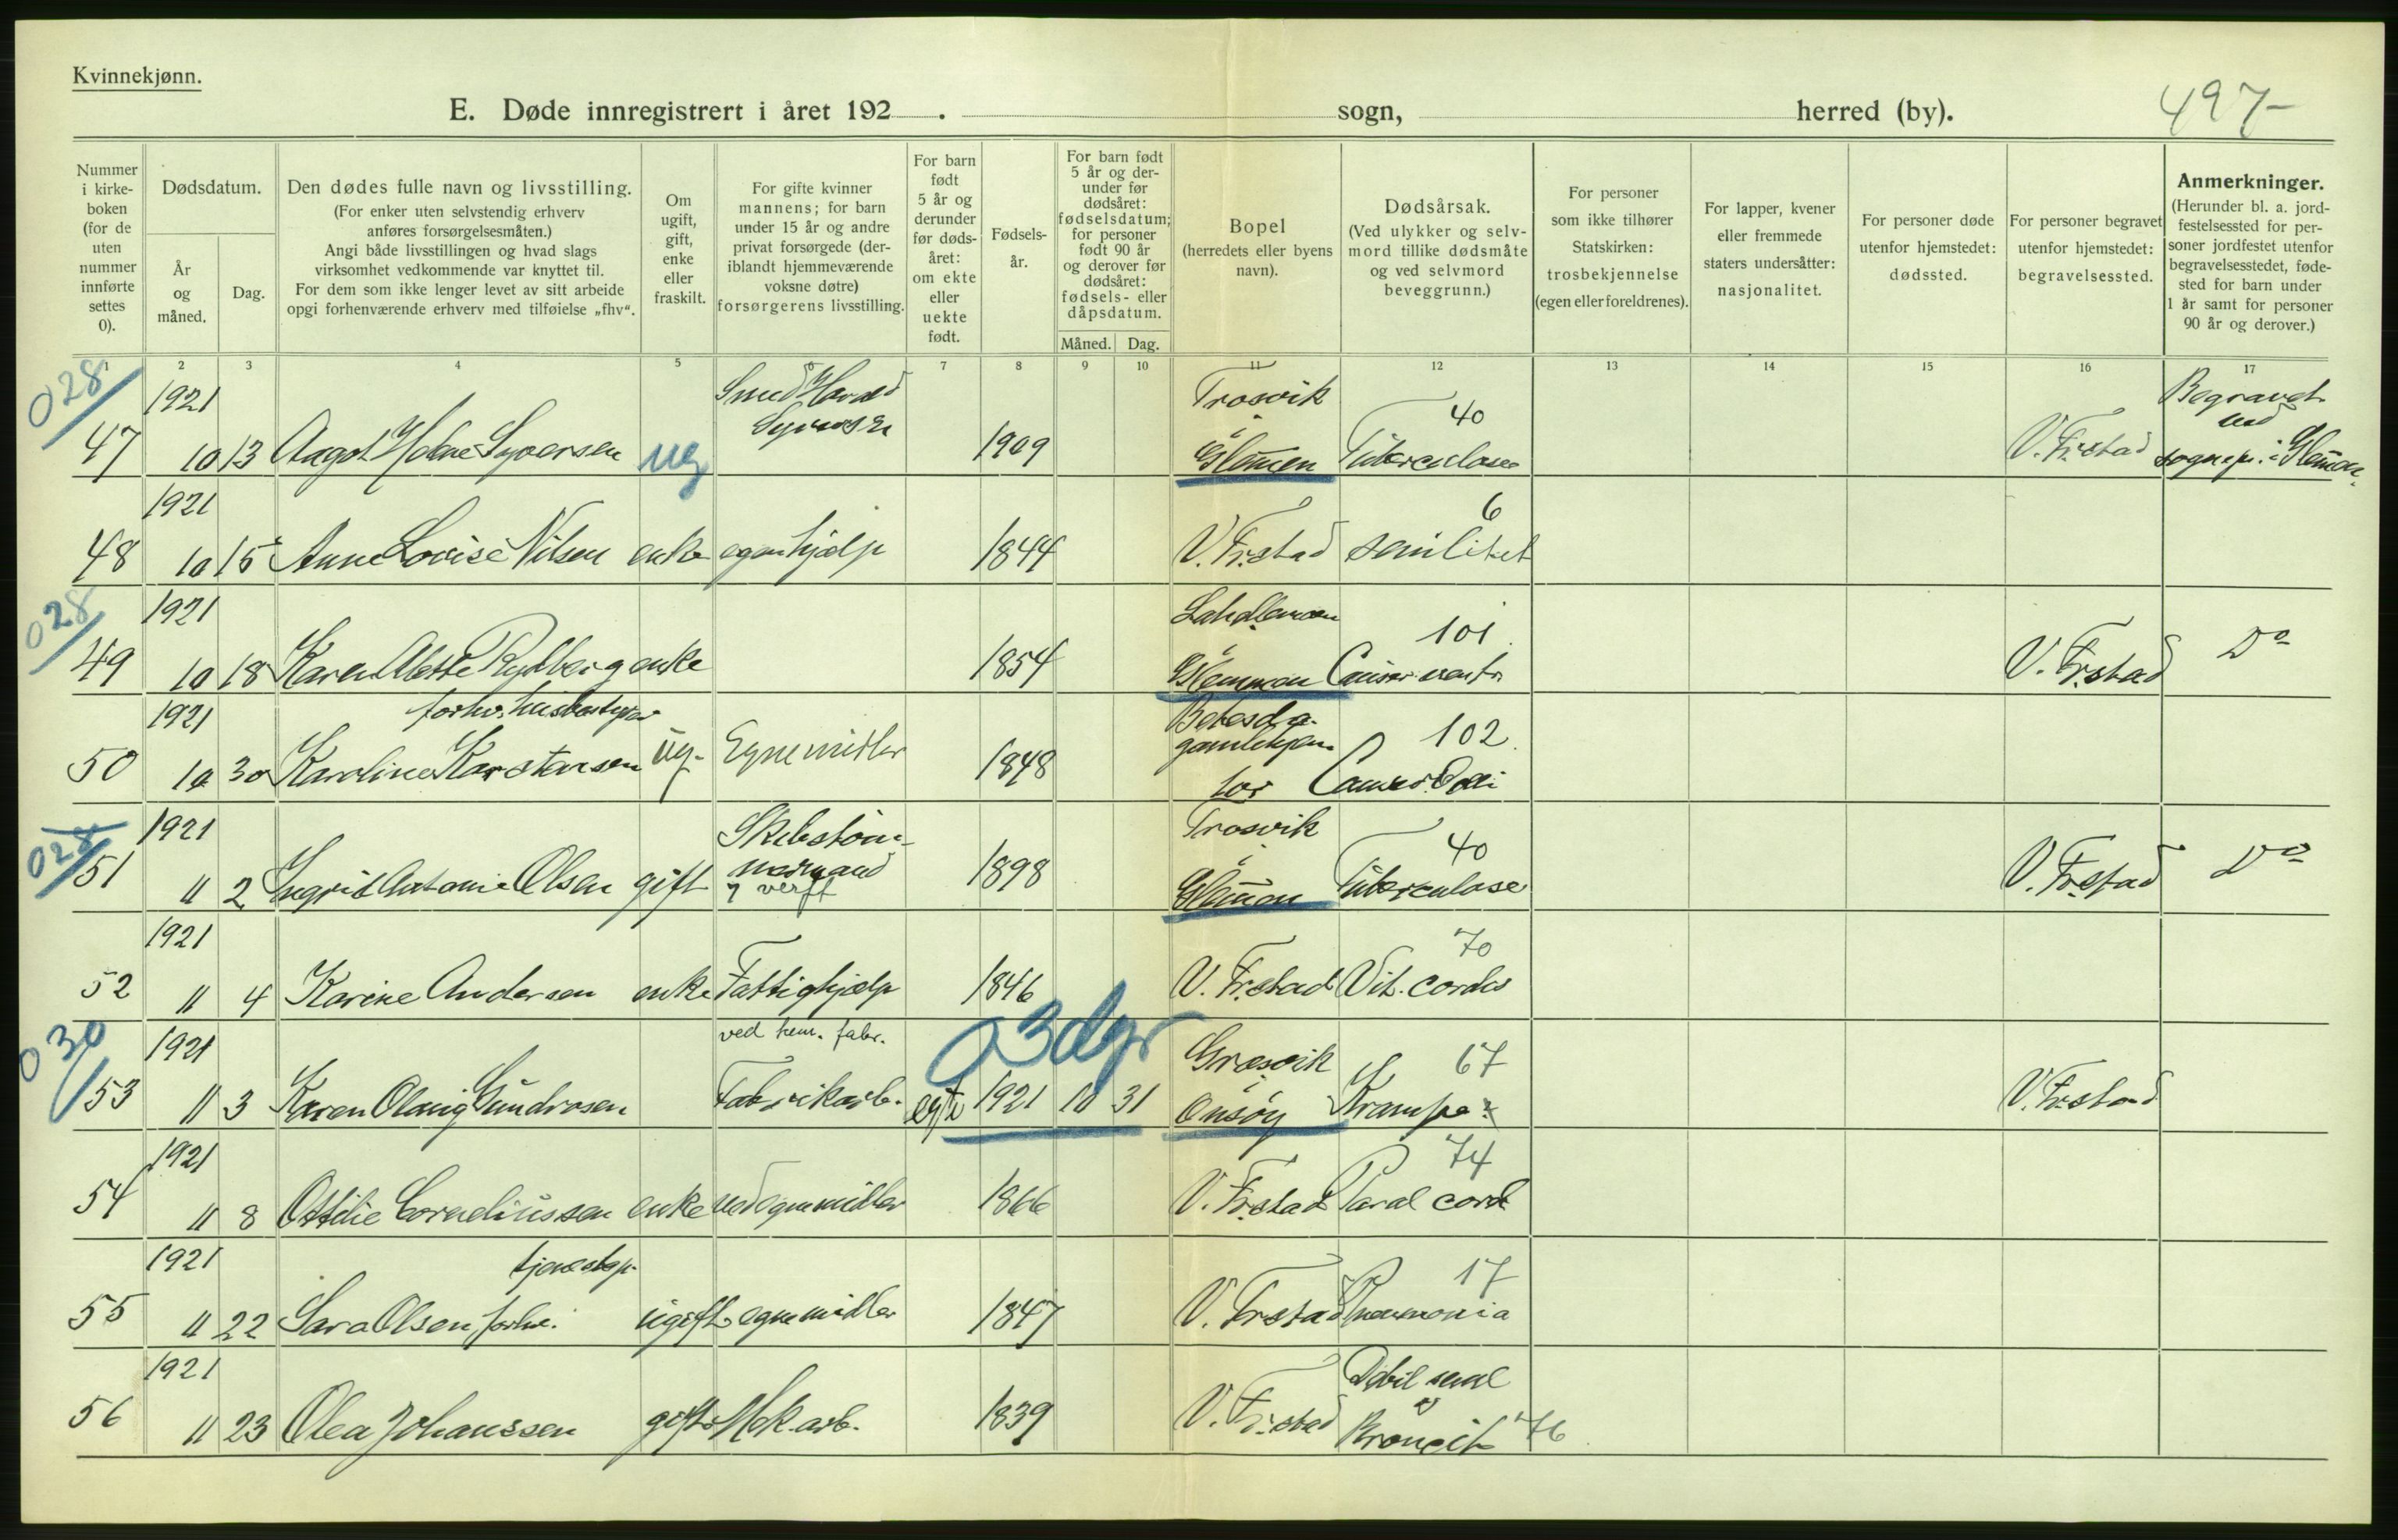 Kvinnekjønn.
E. Døde innregistrert i året 192 . sogn, herred (by). 497-
Nummer i kirke-boken (for de uten nummer innførte settes 0).
Dødsdatum.
År og måned.
Dag.
Den dødes fulle navn og livsstilling.
(For enker uten selvstendig erhverv anføres forsørgelsesmåten.)
Angi både livsstillingen og hvad slags virksomhet vedkommende var knyttet til.
For dem som ikke lenger levet av sitt arbeide opgi forhenværende erhverv med tilføielse „fhv“.
Om ugift, gift, enke eller fraskilt.
For gifte kvinner mannens; for barn under 15 år og andre privat forsørgede (deriblandt hjemmeværende voksne døtre) forsørgerens livsstilling.
For barn født 5 år og derunder før døds-året: om ekte eller uekte født.
Fødsels-år.
For barn født 5 år og der-under før dødsåret: fødselsdatum; for personer født 90 år og derover før dødsåret: fødsels- eller dåpsdatum.
Måned. Dag.
Bopel
(herredets eller byens navn).
Dødsårsak.
(Ved ulykker og selv-mord tillike dødsmåte og ved selvmord beveggrunn.)
For personer som ikke tilhører Statskirken: trosbekjennelse (egen eller foreldrenes).
For lapper, kvener eller fremmede staters undersåtter: nasjonalitet.
For personer døde utenfor hjemstedet: dødssted.
For personer begravet utenfor hjemstedet: begravelsessted.
Anmerkninger.
(Herunder bl. a. jord-festelsessted for per-soner jordfestet utenfor begravelsesstedet, føde-sted for barn under 1 år samt for personer 90 år og derover.)
1 2 3 4 5 6 7 8 9 10 11 12 13 14 15 16 17
028
1921 Smed Harald Trosvik 40 Begravet
47 10 13 Aagot Helene Syversen ug Syversen 1909 i Glemmen Tuberculose V. Fr.stad ved sognepr. i Glemmen
1921 6
48 10 15 Anne Lovise Nilsen enke egenhjælp 1844 V. Fr.stad senilitet
028
1921 101
49 10 18 Karen Alette Rydberg enke 1854 i Glemmen Cancer ventr. V. Fr.stad Do
1921 forhv. husbestyrer Betesda gamlehjem 102
50 10 30 Karoline Karstensen ug. Egne midler 1848 Cancer
028
1921 Trosvik 40
51 11 2 Ingrid Antonie Olsen gift verft 1898 i Glemmen Tuberculose V. Fr.stad Do
1921 70
52 11 4 Karine Andersen enke Fattighjælp 1846 V. Fr.stad Vit. cordis
030 03dgr
1921 ved kem. fabr. Græsvik 67
53 11 3 Karen Olaug Gundrosen Fabrikarb. egte 1921 10 31 i Onsøy Krampe? V. Fr.stad
1921 74
54 11 8 Ottilie Corneliussen enke ved egne midler 1866 V. Fr.stad Paral cord
1921 tjenestep. 17
55 11 22 Sara Olsen, forhv. ugift egne midler 1847 V. Frstad Pneumonia
1921 Debil senil
56 11 23 Olea Johanssen gift Mek. arb. 1839 V. Fr.stad Broncit 76